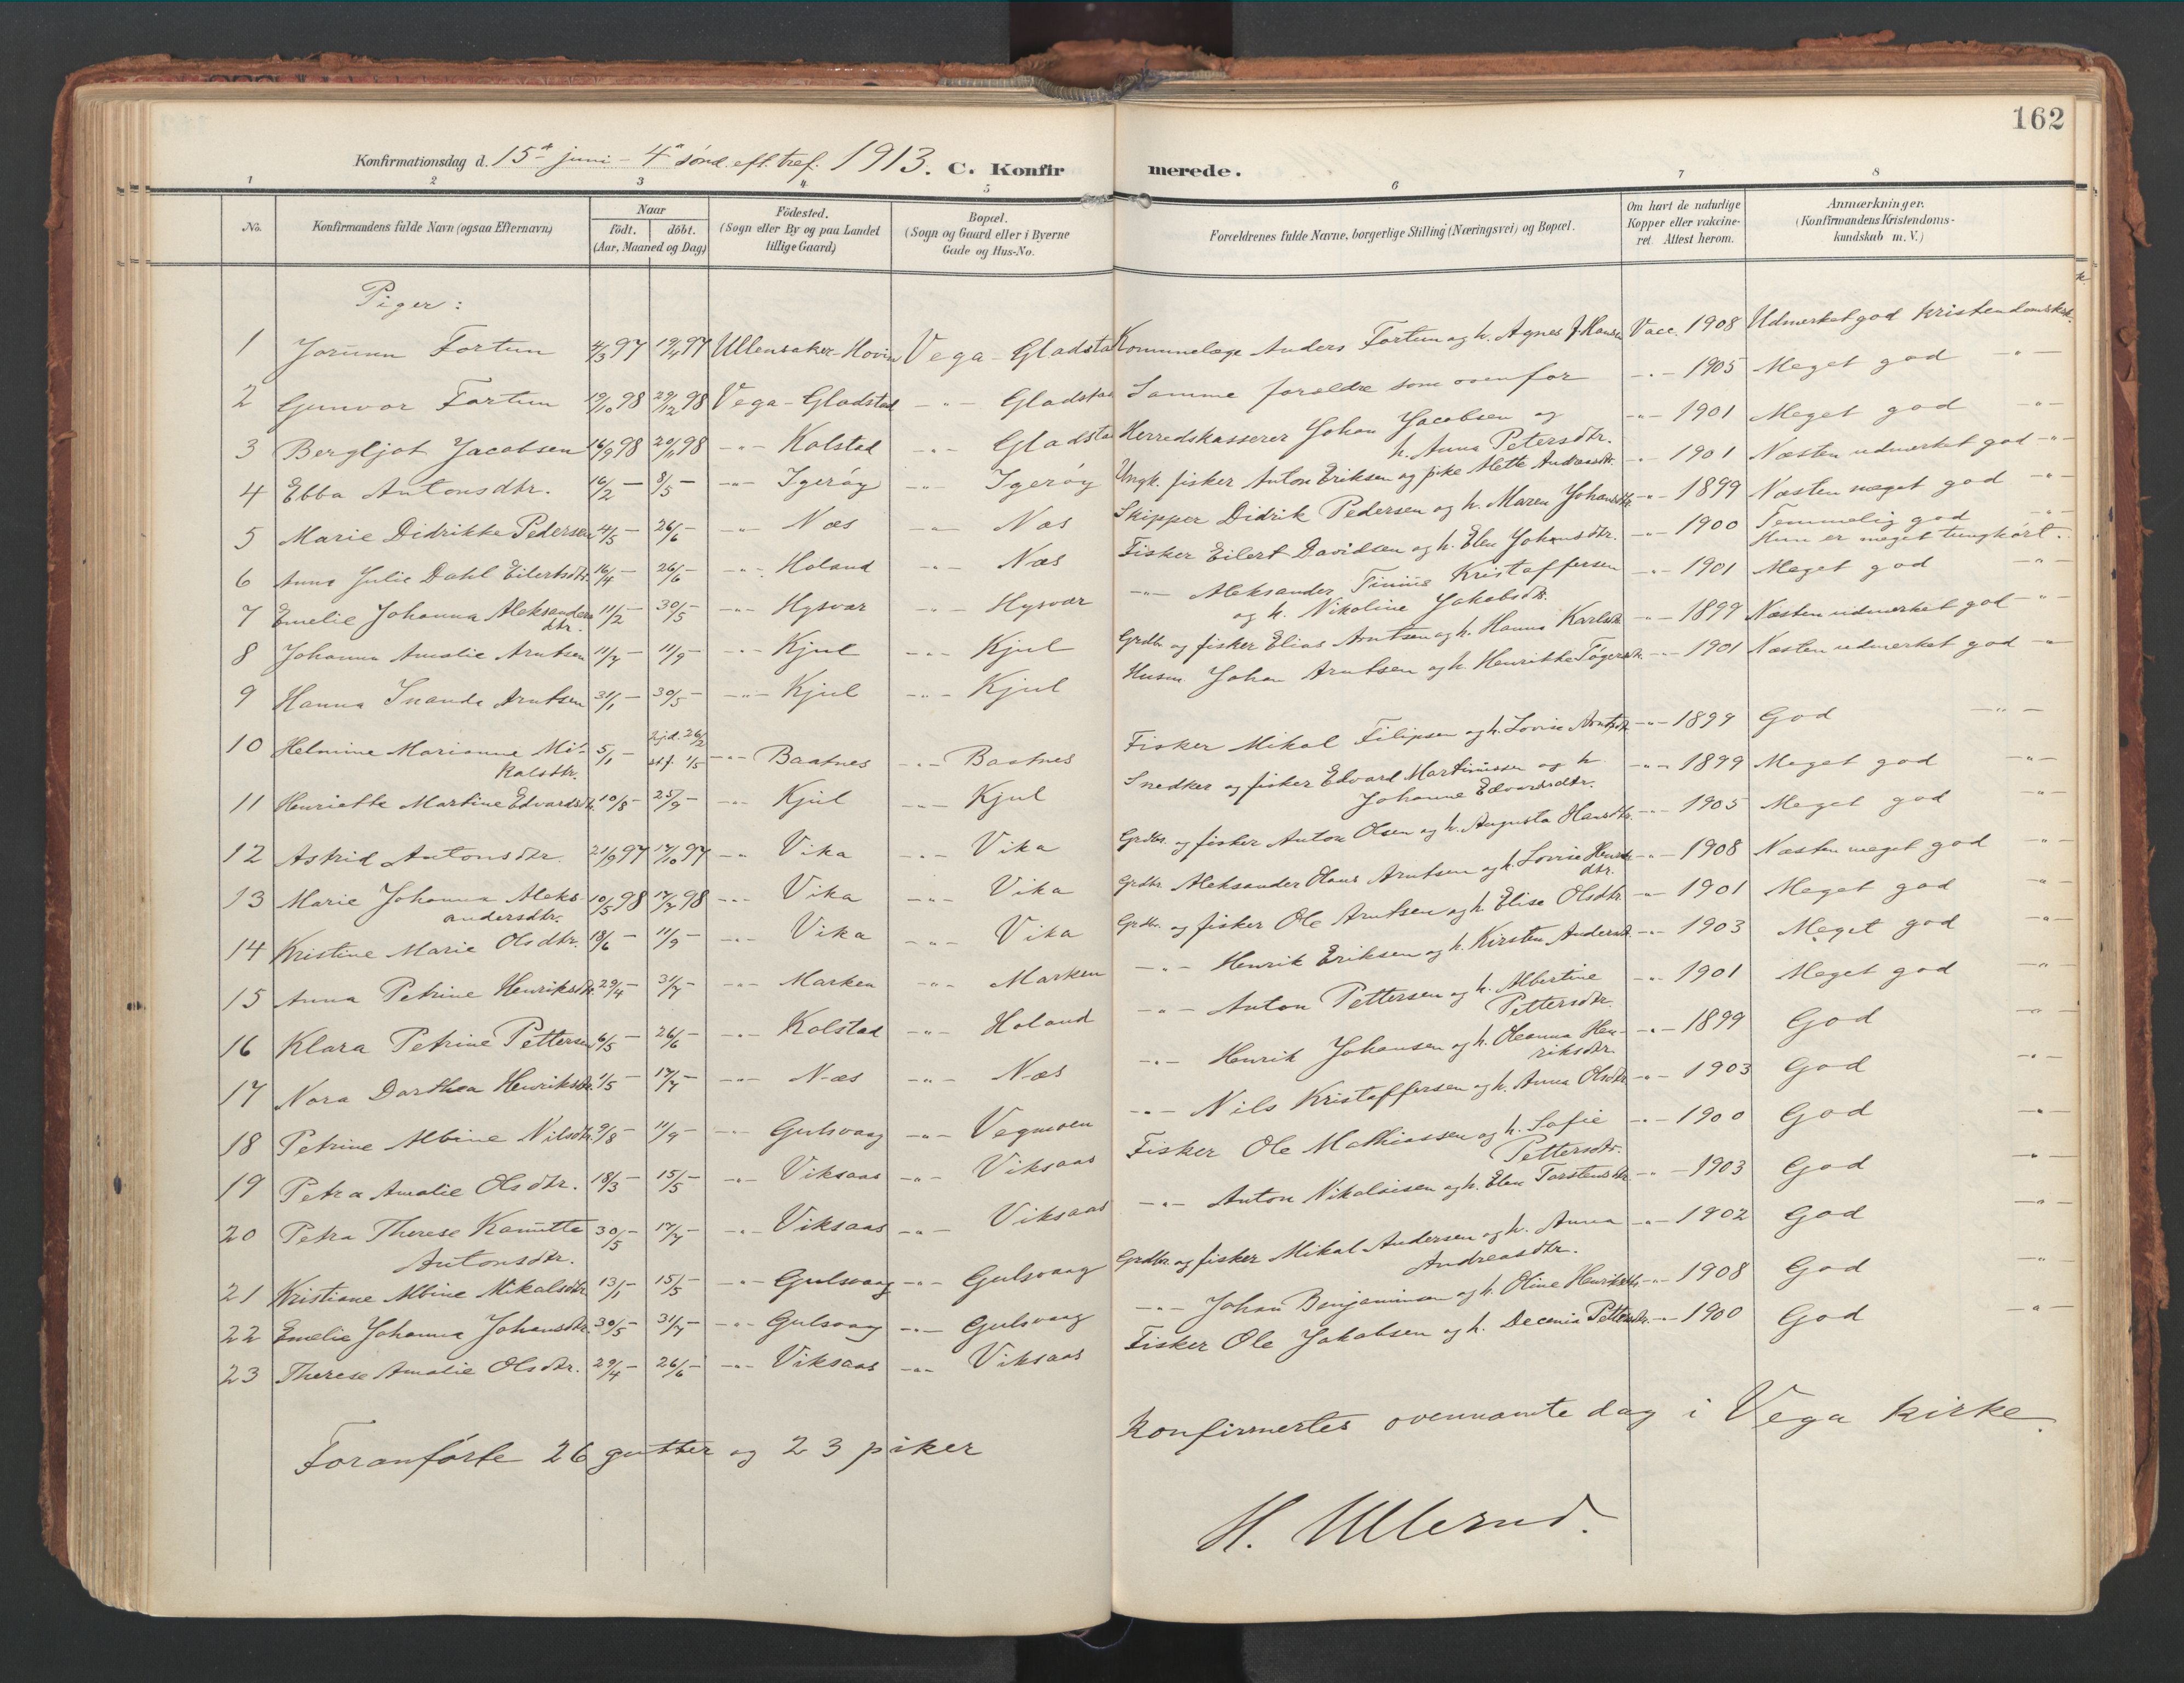 162
Konfirmationsdag d. 15de juni - 4de sønd. eft. tref. 1913. C. Konfirmerede.
1 2 3 4 5 6 7 8
No. Konfirmandens fulde Navn (ogsaa Efternavn) Naar födt. döbt. (Aar, Maaned og Dag) Födested. (Sogn eller By og paa Landet tillige Gaard) Bopæl. (Sogn og Gaard eller i Byerne Gade og Hus-No. Forældrenes fulde Navne, borgerlige Stilling (Næringsvei) og Bopæl. Om havt de naturlige Kopper eller vakcineret. Attest herom. Anmærkninger. (Konfirmandens Kristendomskundskab m. V.)
Piger:
1 Jorunn Fortun 4/3 97 19/4 97 Ullensaker-Hovin Vega - Gladstad Kommunelæge Anders Fortun og h. Agnes J. Hansen Vacc. 1908 Udmerket god kristendomsksk.
2 Gunvor Fortun 19/10 98 29/12 98 Vega - Gladstad -"- Gladstad Samme foreldre som ovenfor -"- 1905 Meget god -"-
3 Bergljot Jacobsen 16/9 98 20/11 98 -"- Kolstad -"- Gladstad Herredskasserer Johan Jacobsen og h. Anna Petersdtr. -"- 1901 Meget god -"-
4 Ebba Antonsdtr. 16/2 - 8/5 - -"- Igerøy -"- Igerøy Ungk. fisker Anton Eriksen og pike Alette Andreasdtr. -"- 1901 Næsten udmerket god -"-
5 Marie Didrikke Pedersen 4/5 - 26/6 - -"- Næs -"- Næs Skipper Didrik Pedersen og h. Maren Johansdtr. -"- 1899 Næsten meget god -"-
6 Anna Julie Dahl Eilertsdtr. 16/4 - 26/6 - -"- Holand -"- Næs Fisker Eilert Davidsen og h. Elen Johansdtr. -"- 1900 Temmelig god -"- Hun er meget tunghørt.
7 Emelie Johanna Aleksandersdtr. 11/2 - 30/5 - -"- Hysvær -"- Hysvær -"- Aleksander Kristoffersen og h. Nikoline Jakobsdtr. -"- 1901 Meget god -"-
8 Johanna Amalie Arntsen 11/7 - 11/9 - -"- Kjul -"- Kjul Grdbr. og fisker Elias Arntsen og h. Hanna Karlsdtr. -"- 1899 Næsten udmerket god -"-
9 Hanna Inanda Arntsen 31/1 - 30/5 - -"- Kjul -"- Kjul Husm. Johan Arntsen og h. Henrikke Tøgersdtr. -"- 1901 Næsten udmerket god -"-
10 Helmine Marianne Mikalsdtr. 5/1 - hjd. 26/2 st.f. 1/5 -"- Baatnes -"- Baatnes Fisker Mikal Filipsen og h. Lovise Arntsdtr. -"- 1899 God -"-
11 Henriette Martine Edvardsdtr. 10/8 - 25/9 - -"- Kjul -"- Kjul Snedker og fisker Edvard Martinussen og h. Johanne Edvardsdtr. -"- 1899 Meget god -"-
12 Astrid Antonsdtr. 21/9 97 17/10 97 -"- Vika -"- Vika Grdbr. og fisker Anton Olsen og h. Augusta Hansdtr. -"- 1905 Meget god -"-
13 Marie Johanna Aleksandersdtr. 10/5 98 17/7 98 -"- Vika -"- Vika Grdbr. Aleksander Olaus Arntsen og h. Lovise dtr. -"- 1908 Næsten meget god -"-
14 Kristine Marie Olsdtr. 18/6 - 11/9 - -"- Vika -"- Vika Grdbr. og fisker Ole Arntsen og h. Elise Olsdtr. -"- 1901 Meget god -"-
15 Anna Petrine Henriksdtr. 29/4 - 31/7 - -"- Marken -"- Marken -"- Henrik Eriksen og h. Kirsten Andersd. -"- 1903 Meget god -"-
16 Klara Petrine Pettersen 6/5 - 26/6 - -"- Kolstad -"- Holand -"- Anton Pettersen og h. Albertine Pettersdtr. -"- 1901 Meget god -"-
17 Nora Dorthea Henriksdtr. 1/5 - 17/7 - -"- Næs -"- Næs -"- Henrik Johansen og h. Oleanna Henriksdtr. -"- 1899 God -"-
18 Petrine Albine Nilsdtr. 9/8 - 11/9 - -"- Gulsvaag -"- Vegmoen -"- Nils Kristoffersen og h. Anna Olsdtr. -"- 1903 God -"-
19 Petra Amalie Olsdtr. 18/3 - 15/5 - -"- Viksaas -"- Viksaas Fisker Ole Mathiassen og h. Sofie Pettersdtr. -"- 1900 God -"-
20 Petra Therese Kamitta Antonsdtr. 30/5 - 17/7 - -"- Viksaas -"- Viksaas -"- Anton Nikolaisen og h. Elen Torstensdtr. -"- 1903 God -"-
21 Kristiane Albine Mikalsdtr. 13/1 - 15/5 - -"- Gulsvaag -"- Gulsvaag Grdbr. og fisker Mikal Andersen og h. Anna Andreasdtr. -"- 1902 God -"-
22 Emelie Johanna Johansdtr. 30/5 - 31/7 - -"- Gulsvaag -"- Gulsvaag -"- Johan Benjaminsen og h. Oline Henriksdtr. -"- 1908 God -"-
23 Therese Amalie Olsdtr. 29/4 - 26/6 - -"- Viksaas -"- Viksaas Fisker Ole Jakobsen og h. Decenia Pettersdtr. -"- 1900 God -"-
Foranførte 26 gutter og 23 piker konfirmertes ovennævnte dag i Vega kirke.
H. Ullerud.